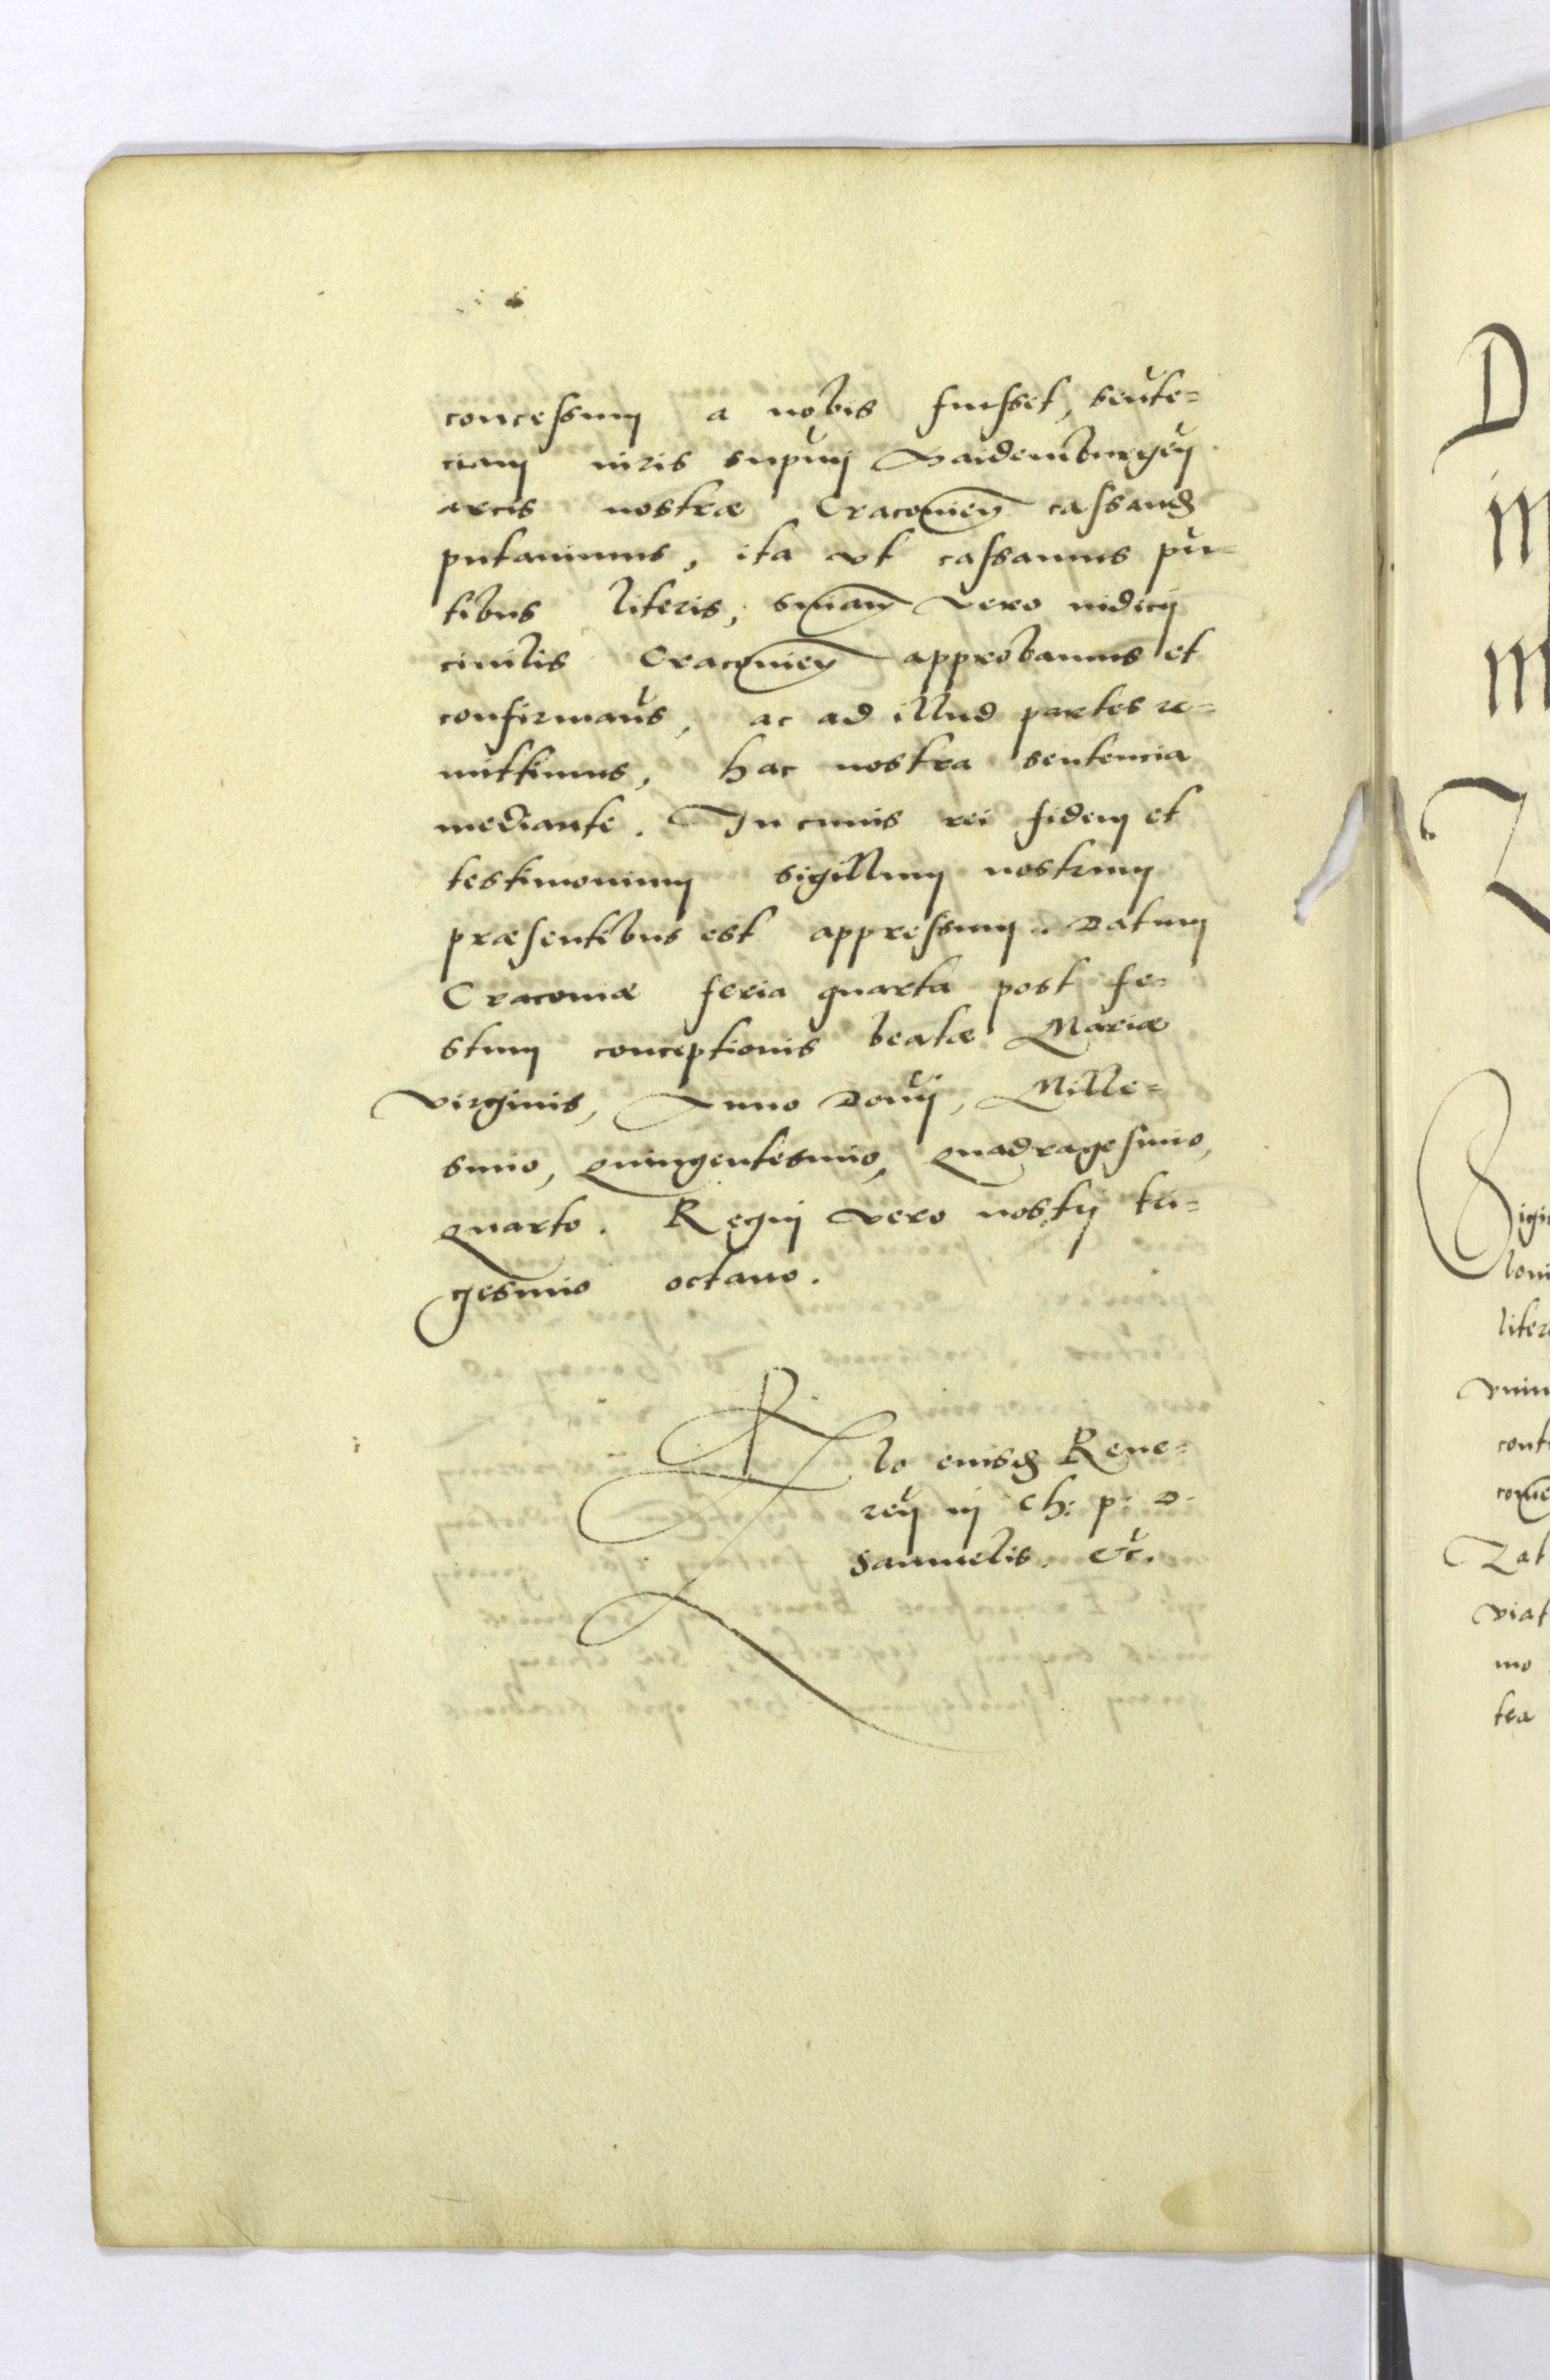 concessum a nobis fuisset, senten=
ciam iuris supmi Maidemburgen
arcis nostræ Cracovien cassand
putavimus, ita vt cassamus pn=
tibus literis, sniam vero iudicij
civilis Cracovien approbamus et
confirmaus, ac ad illud partes re=
mittimus, hac nostra sentencia
mediante. In cuius rei fidem et
testimonium sigillum nostrum
præsentibus est appressum. Datum
Cracoviæ feria quarta post fe=
stum conceptionis beatæ Mariæ
virginis, Anno Dni, Mille=
simo, quingentesimo, quadragesimo,
quarto. Regni vero nostri tri=
gesimo octavo.
Rlo eiusd Reve=
ren in Ch: p: D.
Samuelis. etc.
D